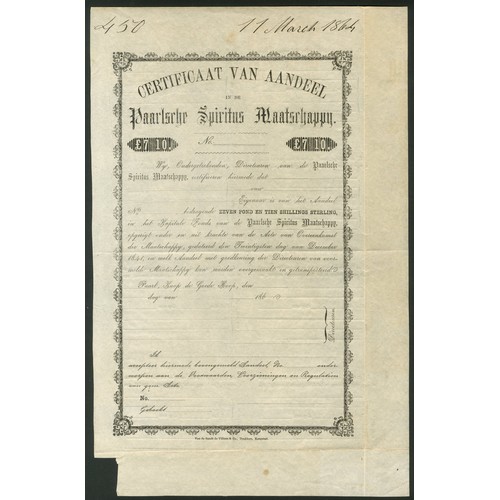 450 11 March 1864
CERTIFICAAT VAN AANDEEL
IN DE
Paarlsche Spiritus Maatschappy.
£7 10 No. £7 10
Wy, Ondergetekenden, Directeuren van de Paarlsche
Spiritus Maatschappy, certificeren hiermede dat
van
Eigenaar is van het Aandeel
No. bedragende ZEVEN POND EN TIEN SHILLINGS STERLING,
in het Kapitale Fonds van de Paarlsche Spiritus Maatschappy,
opgerigt onder en uit krachte van de Acte van Overeenkomst
der Maatschappy, gedateerd den Twintigsten dag van December
en welk Aandeel met goedkeuring der Directeuren van
Maatschappy kan worden overgemaakt en getransporteerd.
Paarl, Kaap de Goede Hoop, den
dag van 186
Directeuren.
Ik
accepteer hiermede bovengemeld Aandeel, No. onder-
worpen aan de Voorwaarden, Voorzieningen en Regulatien
van gem. Acte
No.
Geboekt
Van de Sandt de Villiers & Co., Drukkers, Kaapstad.